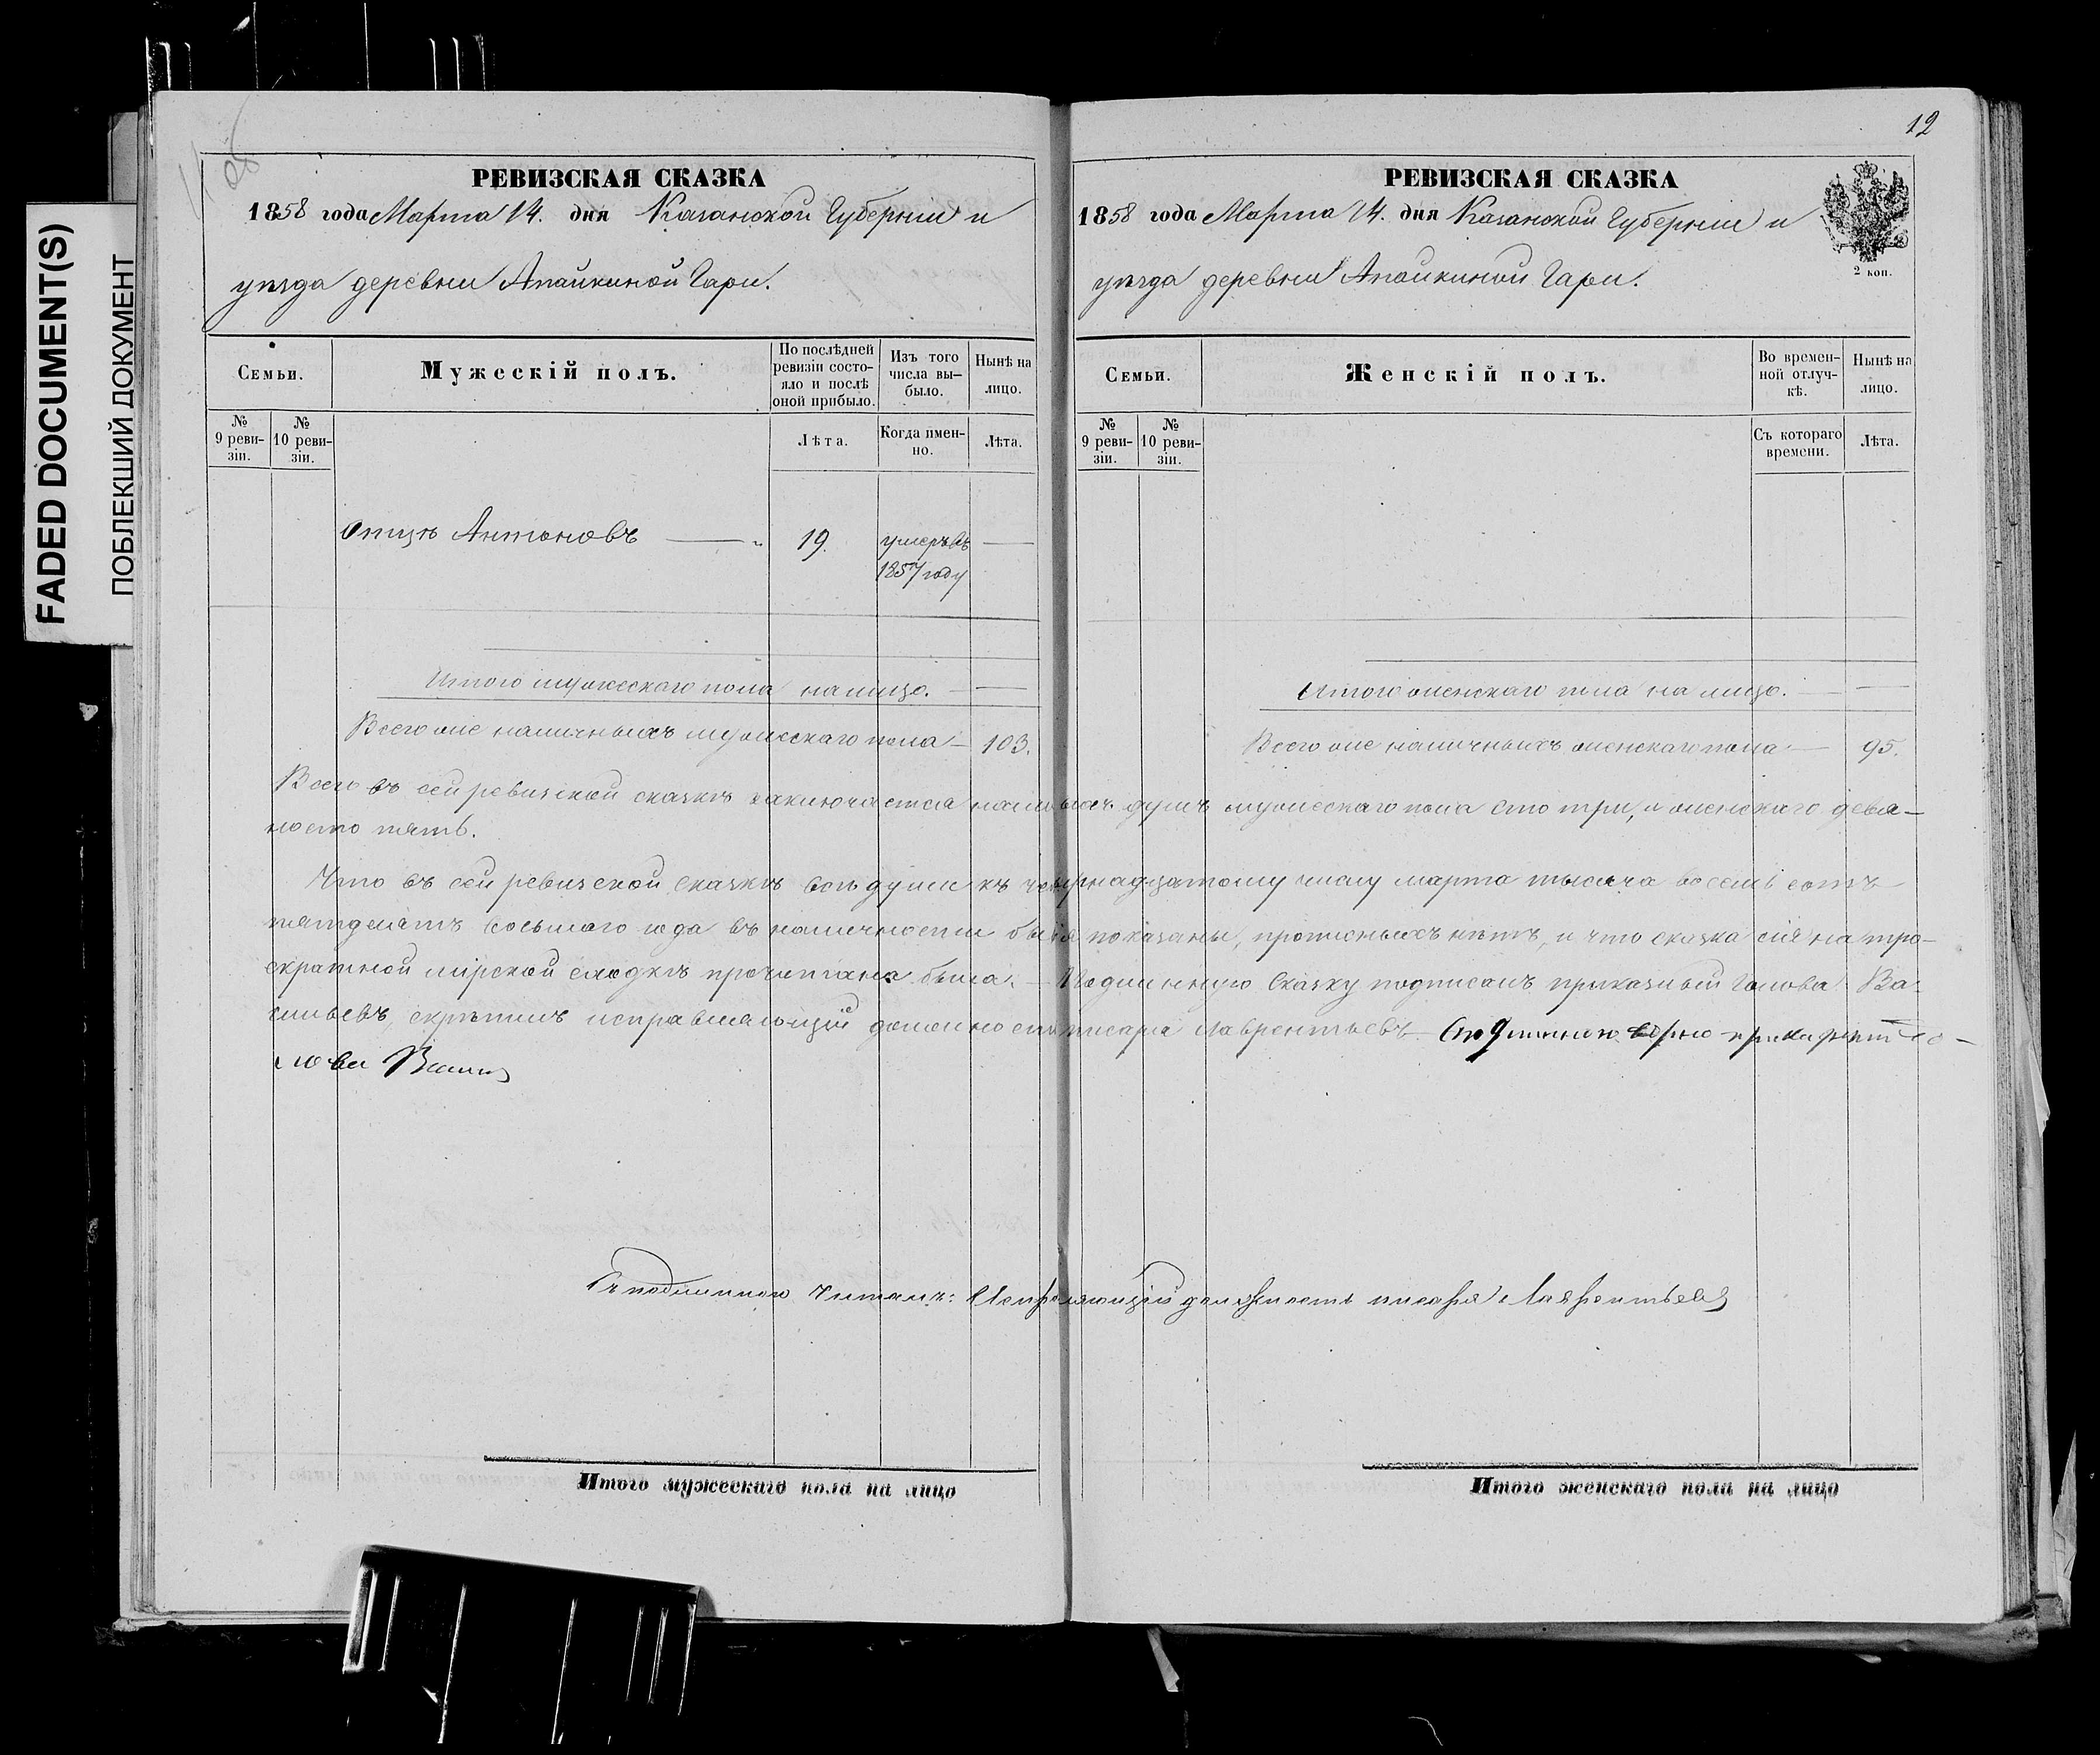 FADED DOCUMENT(S)
ПОБЛЕКШИЙ ДОКУМЕНТ
РЕВИЗСКАЯ СКАЗКА
1858 года Марта 14. дня Казанской Губернiи и
уѣзда деревни Апайкиной Гари.
Семьи.
Мужескiй полъ.
По послѣдней ревизiи состо-
яло и послѣ
оной прибыло.
Изъ того
числа вы-
было.
Нынѣ на
лицо.
№
9 реви-
зiи.
№
10 реви-
зiи.
Лѣта.
Когда имен-
но.
Лѣта.
Антоновъ — „ 19. умеръ въ —
1857 году
Итого мужескаго пола на лицо. —
Всего же наличныхъ мужескаго пола — 103.
12
РЕВИЗСКАЯ СКАЗКА
1858 года Марта 14. дня Казанской Губернiи и
уѣзда деревни Апайкиной Гари.
2 коп.
Семьи.
Женскiй полъ.
Во времен-
ной отлуч-
кѣ.
Нынѣ на
лицо.
№
9 реви-
зiи.
№
10 реви-
зiи.
Съ котораго
времени.
Лѣта.
Итого женскаго пола на лицо. —
Всего же наличныхъ женскаго пола — 95.
Всего въ сей ревизской сказкѣ заключается душъ мужескаго пола сто три, и женскаго девя-
носто пять.
Что въ сей ревизской сказкѣ всѣ души къ четырнадцатому числу марта тысяча восемь сотъ
пятдесятъ восьмаго года въ наличности бытiя показаны, прописныхъ нѣтъ, и что сказка сiя на тро-
екратной мiрской сходкѣ прочитана была. — Подлинную сказку подписалъ приказный Голова Ва-
сильевъ, скрѣпилъ исправляющiй должность писаря Лаврентьевъ. Съ подлинною верно приказный го-
лова
Съ подлинною читалъ: Исправляющiй должность писаря Лаврентьевъ
Итого мужескаго пола на лицо
Итого женскаго пола на лицо